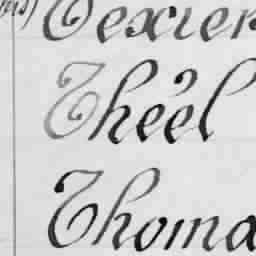 Texier
Théel
Thoma